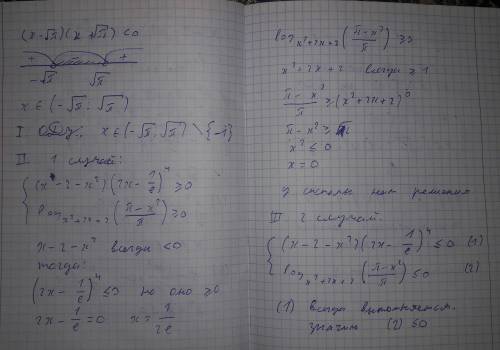 (x-√π)(x+√π)<0
+ - +
-√π √π
x ∈ (-√π; √π)
I ОДЗ: x ∈ (-√π; √π) \ {-1}
II 1 случай:
{ (x-2-x²)(2x-1/e)⁴ ≥ 0
log_{x²+2x+2} (π-x²/π) ≥ 0
x-2-x² всегда <0
тогда:
(2x-1/e)⁴ ≤ 0 но оно ≥0
2x-1/e=0 x=1/2e
log_{x²+2x+2} (π-x²/π) ≥ 0
x²+2x+2 всегда ≥1
π-x²/π ≥ (x²+2x+2)⁰
π-x² ≥ π
x² ≤ 0
x=0
у системы нет решения
III 2 случай.
{ (x-2-x²)(2x-1/e)⁴ ≤ 0 (1)
log_{x²+2x+2} (π-x²/π) ≤ 0 (2)
(1) всегда выполняется.
значит (2) ≤0